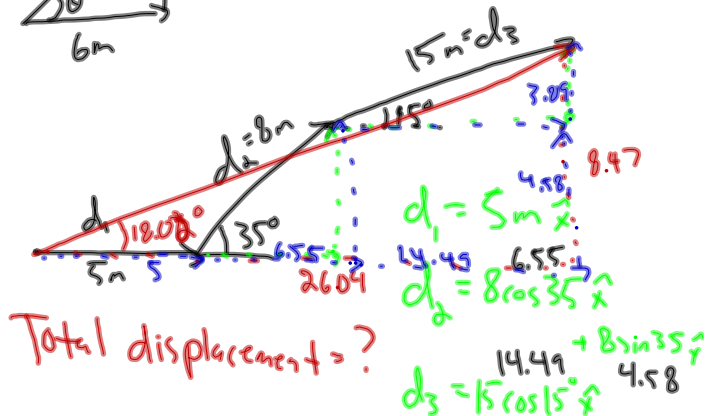 θ
6m
15m=d3
3.89
d2=8m
15°
8.47
4.58
d1
18.02°
35°
d1 = 5m x̂
5m 5 6.55 14.49 6.55
26.04
d2 = 8cos35 x̂
+ 8sin35 ŷ
Total displacement = ?
14.49 4.58
d3 = 15cos15° x̂